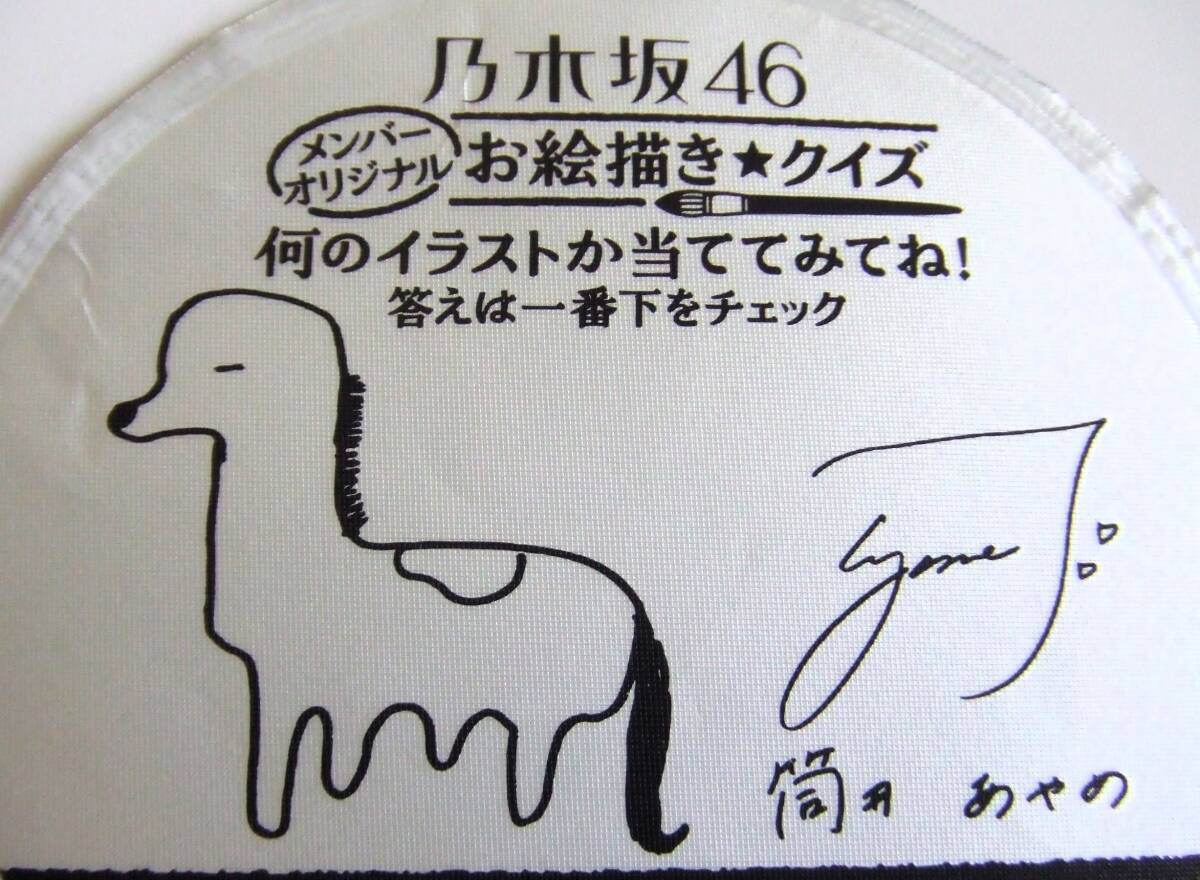 乃木坂46
メンバー
オリジナル
お絵描き★クイズ
何のイラストか当ててみてね!
答えは一番下をチェック
筒井 あやめ